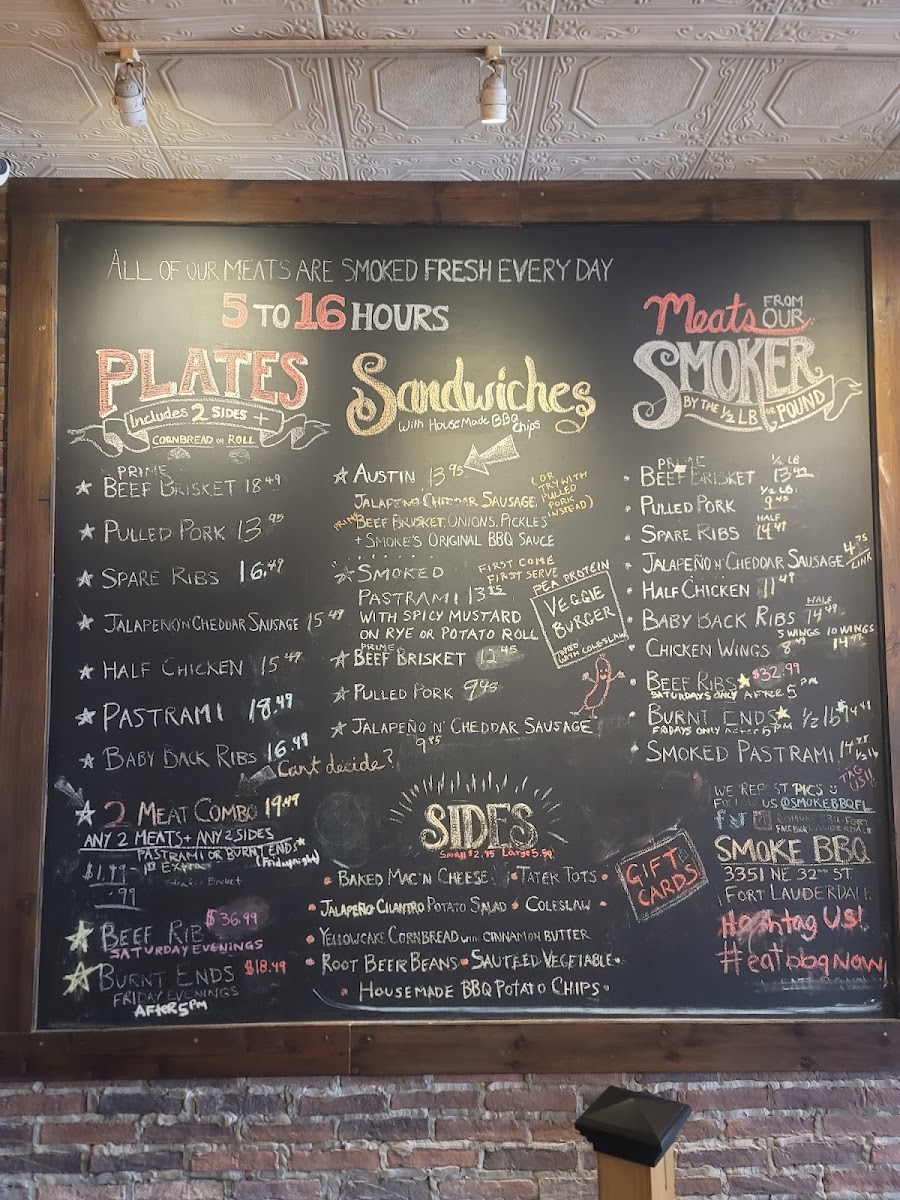 ALL OF OUR MEATS ARE SMOKED FRESH EVERY DAY
5 TO 16 HOURS
PLATES
Includes 2 SIDES +
CORNBREAD OR ROLL
PRIME
BEEF BRISKET 18.49
PULLED PORK 13.95
SPARE RIBS 16.49
JALAPEÑO N' CHEDDAR SAUSAGE 15.49
HALF CHICKEN 15.49
PASTRAMI 18.49
BABY BACK RIBS 16.49
Can't decide?
2 MEAT COMBO 19.49
ANY 2 MEATS + ANY 2 SIDES
PASTRAMI OR BURNT ENDS*
(Friday night)
$1.99
.99
BEEF RIB $36.99
SATURDAY EVENINGS
BURNT ENDS $18.49
FRIDAY EVENINGS
AFTER 5PM
Sandwiches
With HouseMade BBQ Chips
AUSTIN 13.95
JALAPENO CHEDDAR SAUSAGE,
(OR TRY WITH PULLED PORK INSTEAD)
PRIME BEEF BRISKET, ONIONS, PICKLES
+ SMOKE'S ORIGINAL BBQ SAUCE
SMOKED
FIRST COME
FIRST SERVE
PASTRAMI
WITH SPICY MUSTARD
ON RYE OR POTATO ROLL
PEA PROTEIN
VEGGIE
BURGER
TOPPED
WITH COLESLAW
PRIME
BEEF BRISKET 12.45
PULLED PORK 9.45
JALAPEÑO N' CHEDDAR SAUSAGE
SIDES
Small $2.95 Large 5.50
BAKED MAC'N CHEESE • TATER TOTS
JALAPEÑO-CILANTRO POTATO SALAD • COLESLAW
YELLOWCAKE CORNBREAD WITH CINNAMON BUTTER
ROOT BEER BEANS • SAUTEED VEGETABLE
HOUSEMADE BBQ POTATO CHIPS
GIFT
CARDS
Meats FROM OUR
SMOKER
BY THE ½ LB OR POUND
PRIME ½ LB
BEEF BRISKET
½ LB.
PULLED PORK 9.45
HALF
SPARE RIBS 14.49
JALAPEÑO N' CHEDDAR SAUSAGE 4.75 LINK
HALF CHICKEN 11.49
HALF
BABY BACK RIBS 14.49
5 WINGS 10 WINGS
CHICKEN WINGS
BEEF RIBS $32.99
SATURDAYS ONLY AFTER 5 PM
BURNT ENDS ½ lb
FRIDAYS ONLY AFTER 5PM
SMOKED PASTRAMI ½ lb
TAG US!!
WE REPOST PICS
FOLLOW US @SMOKEBBQFL
SMOKE BBQ
3351 NE 32ND ST
FORT LAUDERDALE
Hashtag US!
#eatbbqNOW